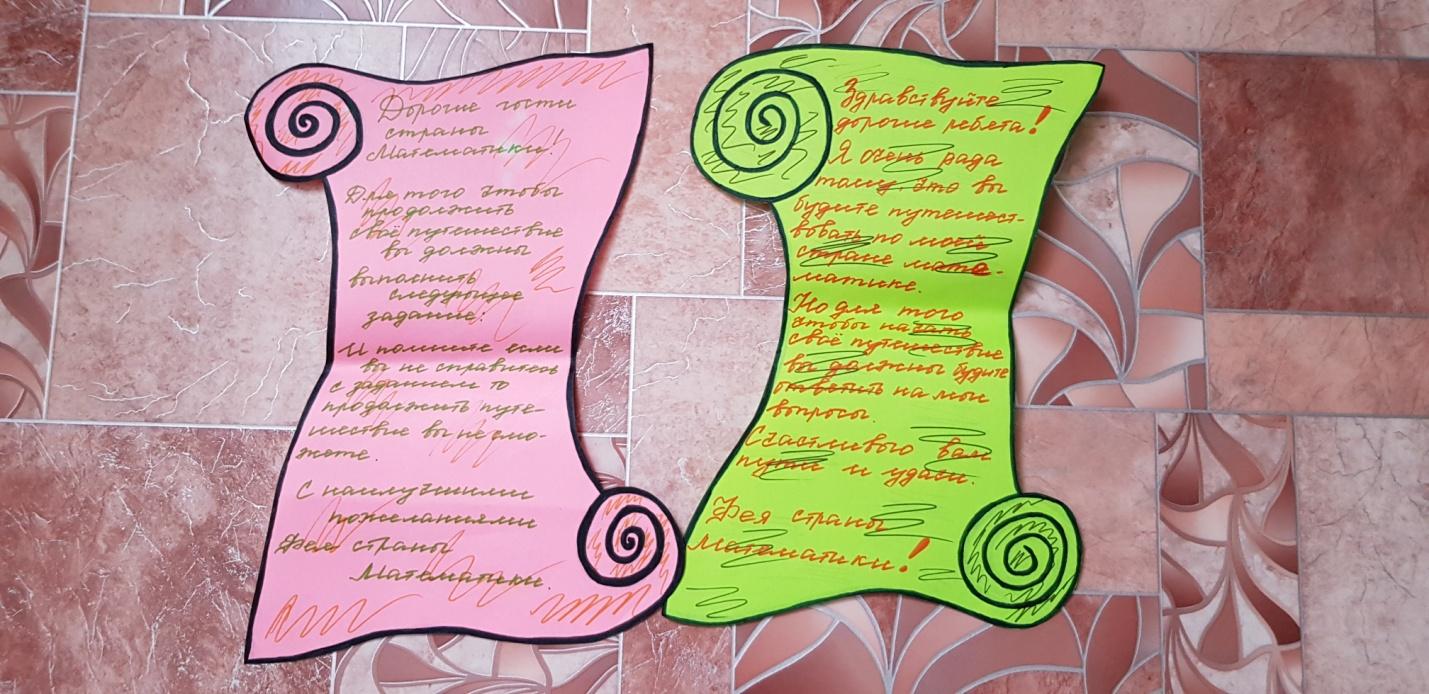 Дорогие гости
страны
Математики!
Для того чтобы
продолжить
своё путешествие
вы должны
выполнить
следующее
задание:
И помните если
вы не справитесь
с заданием то
продолжить путе-
шествие вы не смо-
жете.
С наилучшими
пожеланиями
Фея страны
Математики.
Здравствуйте
дорогие ребята!
Я очень рада
тому, что вы
будите путешест-
вовать по моей
стране мате-
матике.
Но для того
чтобы начать
своё путешествие
вы должны будите
ответить на мои
вопросы.
Счастливого вам
пути и удачи.
Фея страны
Математики!